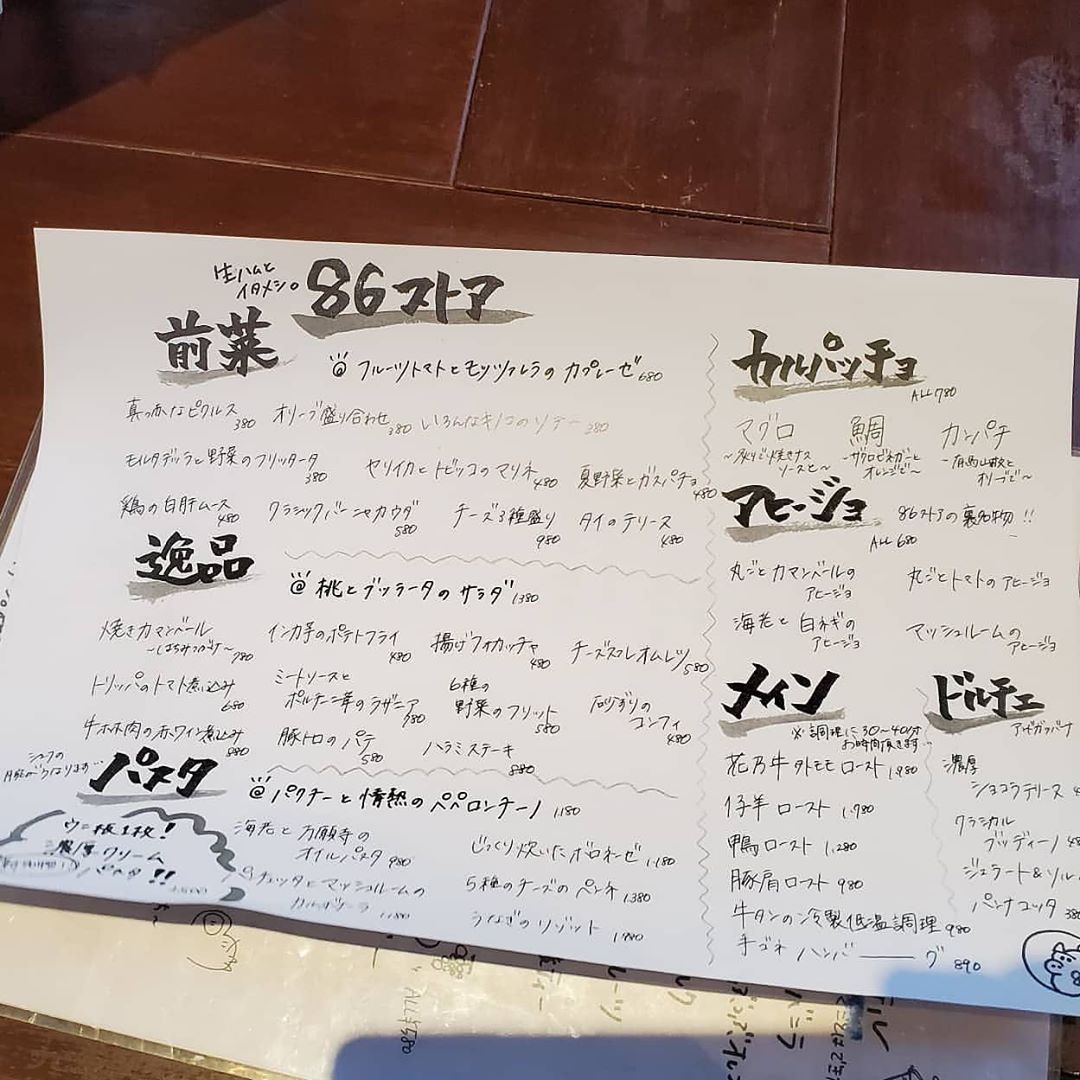 生ハムと
イタメシ。
86ストア
前菜
フルーツトマトとモッツァレラのカプレーゼ 680
真っ赤なピクルス 380 オリーブ盛り合わせ 380 いろんなキノコのソテー 380
モルタデッラと野菜のフリッタータ 380 ヤリイカとトビッコのマリネ 480 夏野菜とガスパチョ 480
鶏の白肝ムース 480 クラシックバーニャカウダ 580 チーズ3種盛り 980 タイのテリース 480
逸品
桃とブッラータのサラダ 1380
焼きカマンベール
~はちみつがけ~ 780
インカ芋のポテトフライ 480
揚げフォカッチャ 480
チーズスフレオムレツ 580
トリッパのトマト煮込み 680
ミートソースと
ポルチーニ茸のラザニア 780
6種の
野菜のフリット 580
砂ずりの
コンフィ 480
牛ホホ肉の赤ワイン煮込み 980
豚トロのパテ 580
ハラミステーキ 880
パスタ
パクチーと情熱のペペロンチーノ 1.180
ウニ一板1枚!
濃厚クリーム
パスタ!!
海老と万願寺の
オイルパスタ 980
じっくり炊いたボロネーゼ 1.180
マッシュルームの
カルボナーラ
5種のチーズのペンネ 1.380
うなぎのリゾット
カルパッチョ
ALL 780
マグロ
~炙りで焼きナス
ソースと~
鯛
~ザクロビネガーと
オレンジで~
カンパチ
~有馬山椒と
オリーブで~
アヒージョ
86ストアの裏名物!!
ALL 680
丸ごとカマンベールの
アヒージョ
丸ごとトマトのアヒージョ
海老と白ネギの
アヒージョ
マッシュルームの
アヒージョ
メイン
※調理に30~40分
お時間頂きます…
花乃牛外モモロースト 1.980
仔羊ロースト 1.780
鴨ロースト 1.280
豚肩ロースト 980
牛タンの冷製低温調理 980
手ゴネハンバーーグ 890
ドルチェ
アザガッパーナ
濃厚
ショコラテリース
クラシカル
プッディーノ
ジェラート&ソル
パンナコッタ 380
ALL ¥580